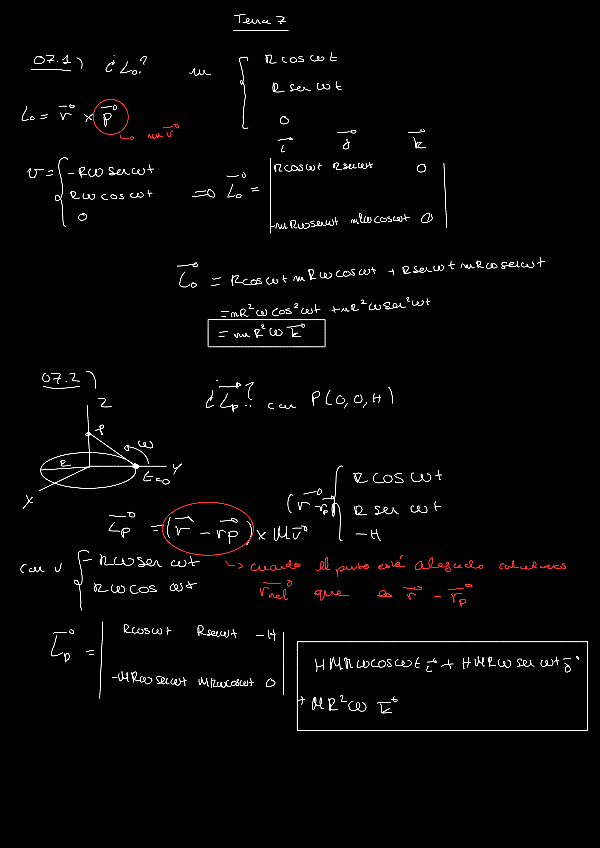 Tema 7
07.1) ¿L₀? m { R cos ωt
R sen ωt
0
L₀ = r⃗ × p⃗
↳ m v⃗
i⃗ j⃗ k⃗
v = { -Rω sen ωt
Rω cos ωt
0
⇒ L⃗₀ = | R cos ωt R sen ωt 0
-mRω sen ωt mRω cos ωt 0 |
L⃗₀ = R cos ωt m R ω cos ωt + R sen ωt m R ω sen ωt
= mR²ω cos² ωt + mR²ω sen² ωt
= m R² ω k⃗
07.2) ¿L⃗p? con P(0,0,H)
Z
P
ω
R
Y
t=0
X
(r⃗ - r⃗p) { R cos ωt
R sen ωt
-H
L⃗p = (r⃗ - r⃗p) × M v⃗
con v { -Rω sen ωt
Rω cos ωt
↳ cuando el punto está alejado calculamos
r⃗rel que es r⃗ - r⃗p
L⃗p = | R cos ωt R sen ωt -H
-MRω sen ωt MRω cos ωt 0 |
HMRω cos ωt i⃗ + HMRω sen ωt j⃗
+ MR²ω k⃗